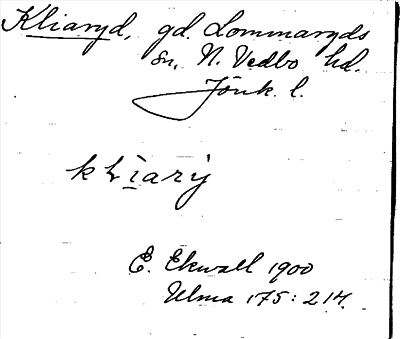 Kliaryd, gd. Lommaryds
sn, N. Vedbo hd.
Jönk. l.
klịarỳ
E. Ekwall 1900
Ulma 175:214.